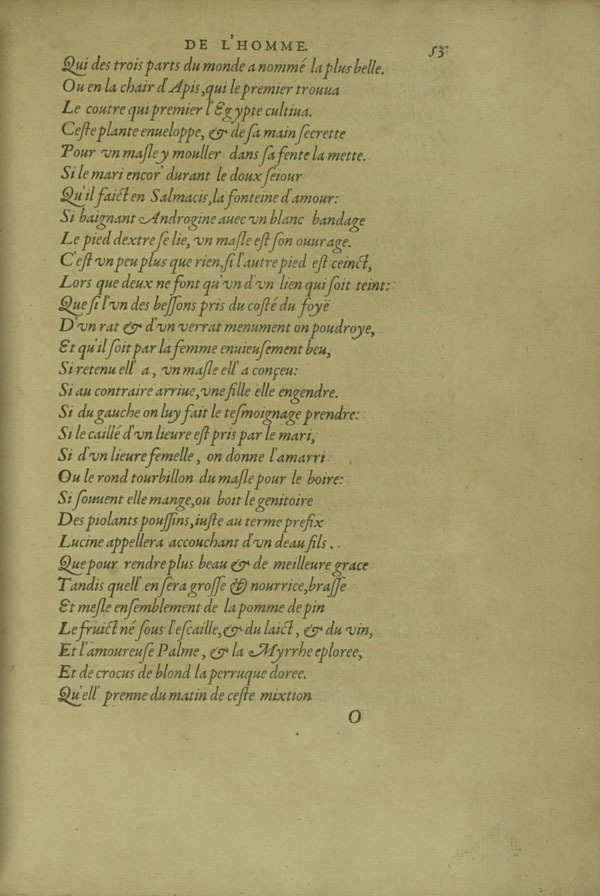 DE L'HOMME. 53
Qui des trois parts du monde a nommé la plus belle.
Ou en la chair d'Apis, qui le premier trouua
Le coutre qui premier l'Egypte cultiua.
Ceſte plante enueloppe, & de ſa main ſecrette
Pour vn maſle y mouller dans ſa fente la mette.
Si le mari encor' durant le doux ſeiour
Qu'il faict en Salmacis, la fonteine d'amour:
Si baignant Androgine auec vn blanc bandage
Le pied dextre ſe lie, vn maſle eſt ſon ouurage.
C'eſt vn peu plus que rien, ſi l'autre pied eſt ceinct,
Lors que deux ne font qu'vn d'vn lien qui ſoit teint:
Que ſi l'vn des beſſons pris du coſté du foyë
D'vn rat & d'vn verrat menument on poudroye,
Et qu'il ſoit par la femme enuieuſement beu,
Si retenu ell' a, vn maſle ell' a conçeu:
Si au contraire arriue, vne fille elle engendre.
Si du gauche on luy fait le teſmoignage prendre:
Si le caillé d'vn lieure eſt pris par le mari,
Si d'vn lieure femelle, on donne l'amarri
Ou le rond tourbillon du maſle pour le boire:
Si ſouuent elle mange, ou boit le genitoire
Des piolants pouſſins, iuſte au terme prefix
Lucine appellera accouchant d'vn beau fils.
Que pour rendre plus beau & de meilleure grace
Tandis quell' en ſera groſſe & nourrice, braſſe
Et meſle enſemblement de la pomme de pin
Le fruict né ſous l'eſcaille, & du laict, & du vin,
Et l'amoureuſe Palme, & la Myrrhe eploree,
Et de crocus de blond la perruque doree.
Qu'ell' prenne du matin de ceſte mixtion
O